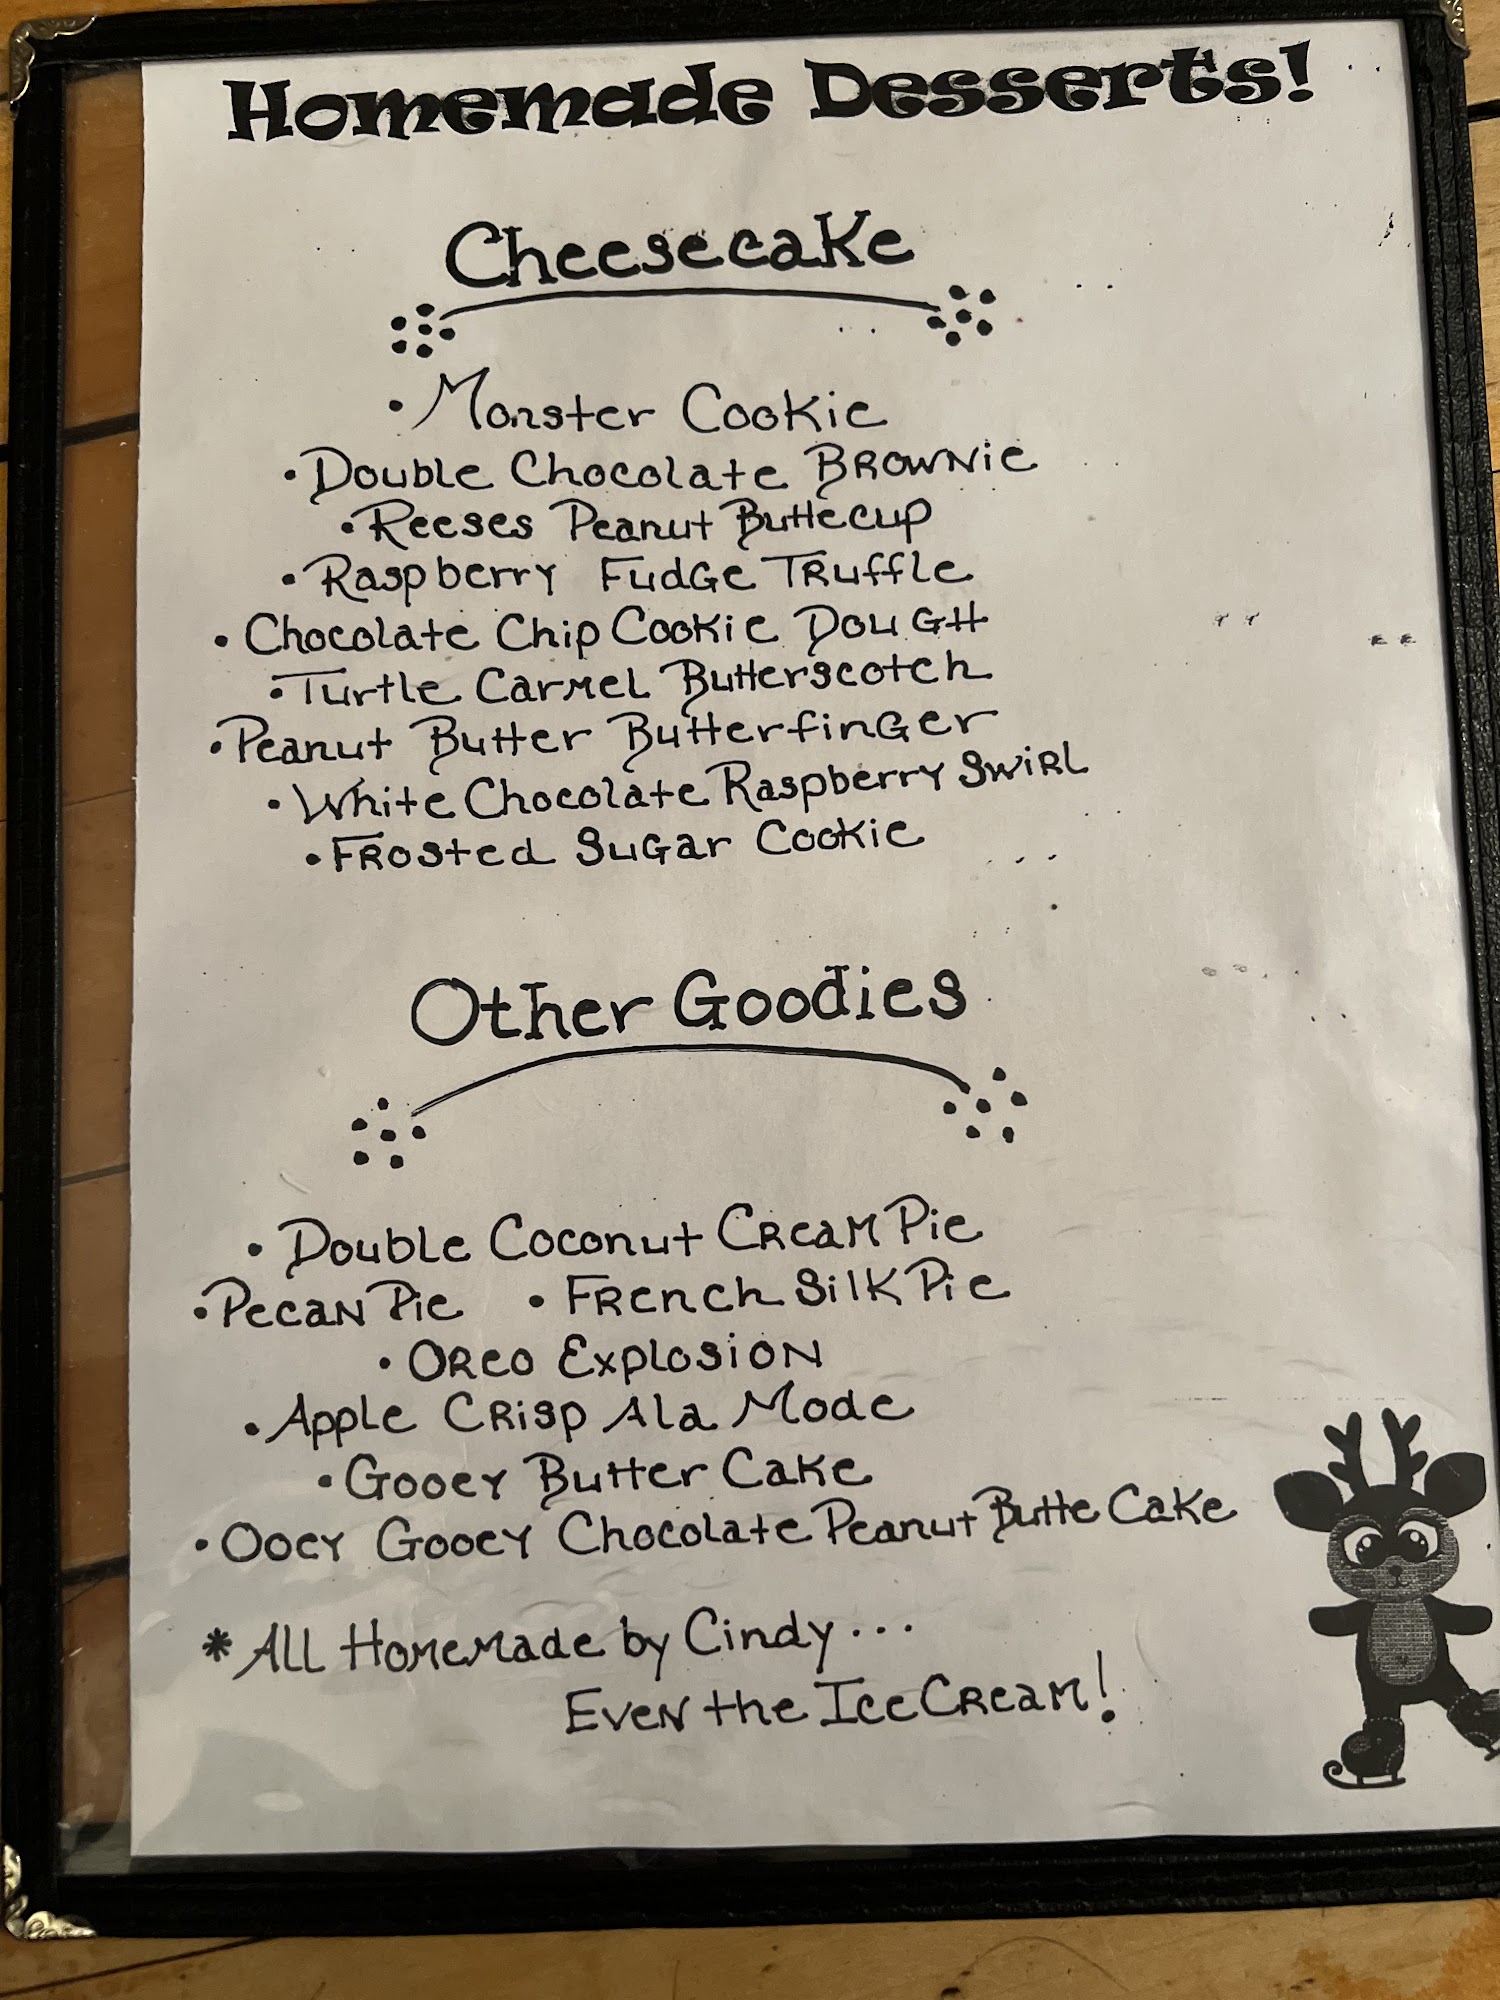 Homemade Desserts!
Cheesecake
• Monster Cookie
• Double Chocolate Brownie
• Reeses Peanut Buttecup
• Raspberry Fudge Truffle
• Chocolate Chip Cookie Dough
• Turtle Carmel Butterscotch
• Peanut Butter Butterfinger
• White Chocolate Raspberry Swirl
• Frosted Sugar Cookie
Other Goodies
• Double Coconut Cream Pie
• Pecan Pie • French Silk Pie
• Oreo Explosion
• Apple Crisp Ala Mode
• Gooey Butter Cake
• Ooey Gooey Chocolate Peanut Butte Cake
* All Homemade by Cindy...
Even the Ice Cream!